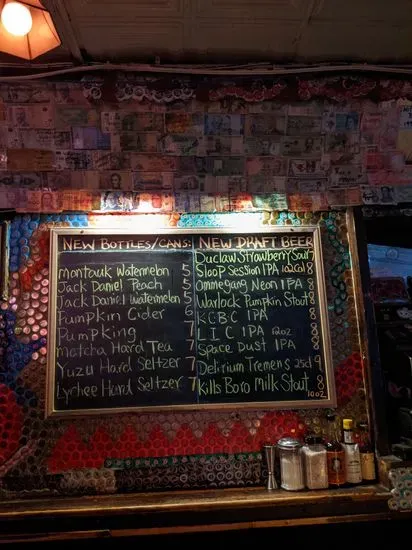 NEW BOTTLES/CANS:
Montauk Watermelon 5
Jack Daniel Peach 5
Jack Daniel Watermelon 5
Pumpkin Cider 6
Pumpking 7
Matcha Hard Tea 7
Yuzu Hard Seltzer 7
Lychee Hard Seltzer 7
NEW DRAFT BEER
Duclaw Strawberry Sour 7
Sloop Session IPA 12oz 8
Ommegang Neon IPA 8
Warlock Pumpkin Stout 8
KCBC IPA 8
LIC IPA 12oz 8
Space Dust IPA 8
Delirium Tremens 25cl 9
Kills Boro Milk Stout 8
10oz